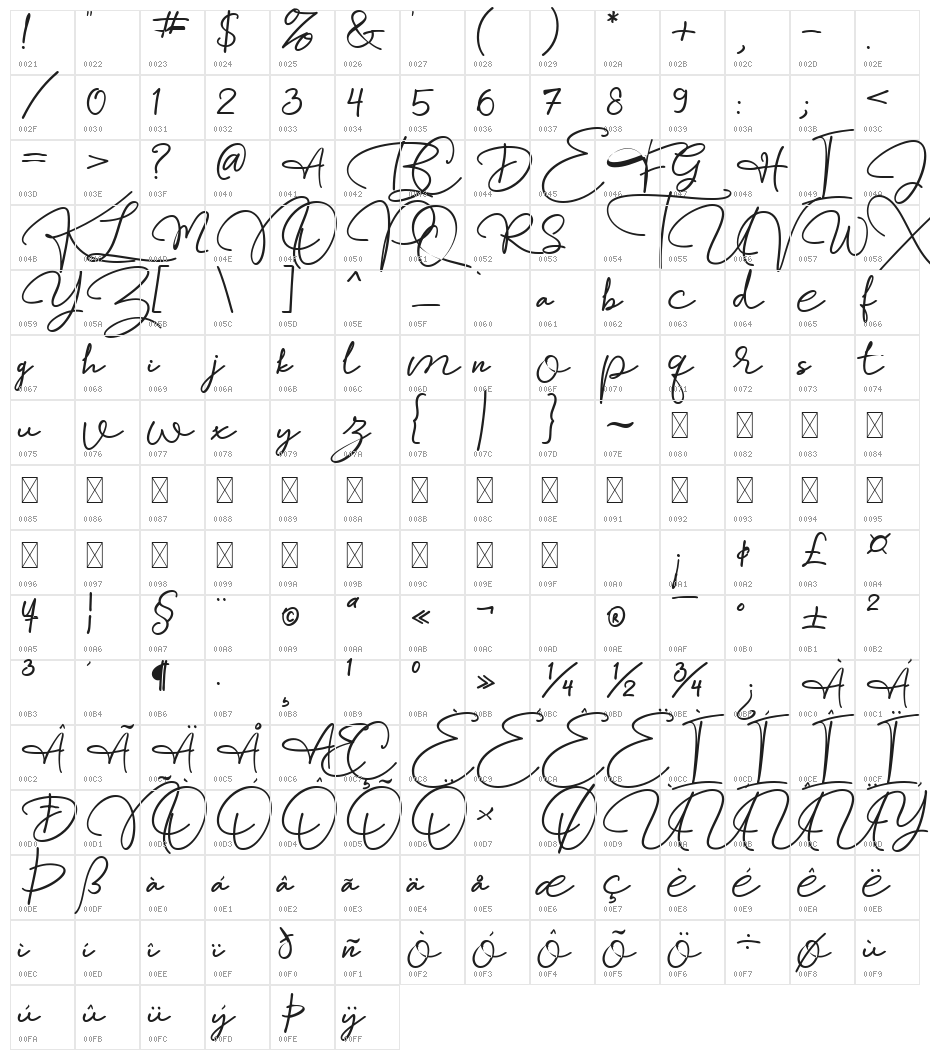 ! " # $ % & ' ( ) * + , - .
0021 0022 0023 0024 0025 0026 0027 0028 0029 002A 002B 002C 002D 002E
/ 0 1 2 3 4 5 6 7 8 9 : ; <
002F 0030 0031 0032 0033 0034 0035 0036 0037 0038 0039 003A 003B 003C
= > ? @ A B C D E F G H I J
003D 003E 003F 0040 0041 0042 0043 0044 0045 0046 0047 0048 0049 004A
K L M N O P Q R S T U V W X
004B 004C 004D 004E 004F 0050 0051 0052 0053 0054 0055 0056 0057 0058
Y Z [ \ ] ^ _ ` a b c d e f
0059 005A 005B 005C 005D 005E 005F 0060 0061 0062 0063 0064 0065 0066
g h i j k l m n o p q r s t
0067 0068 0069 006A 006B 006C 006D 006E 006F 0070 0071 0072 0073 0074
u v w x y z { | } ~
0075 0076 0077 0078 0079 007A 007B 007C 007D 007E 0080 0082 0083 0084
0085 0086 0087 0088 0089 008A 008B 008C 008E 0091 0092 0093 0094 0095
0096 0097 0098 0099 009A 009B 009C 009E 009F 00A0 00A1 00A2 00A3 00A4
¡ ¢ £ ¤
¥ ¦ § ¨ © ª « ¬ ® ¯ ° ± ²
00A5 00A6 00A7 00A8 00A9 00AA 00AB 00AC 00AD 00AE 00AF 00B0 00B1 00B2
³ ´ ¶ · ¸ ¹ º » ¼ ½ ¾ ¿ À Á
00B3 00B4 00B6 00B7 00B8 00B9 00BA 00BB 00BC 00BD 00BE 00BF 00C0 00C1
Â Ã Ä Å Æ Ç È É Ê Ë Ì Í Î Ï
00C2 00C3 00C4 00C5 00C6 00C7 00C8 00C9 00CA 00CB 00CC 00CD 00CE 00CF
Ð Ñ Ò Ó Ô Õ Ö × Ø Ù Ú Û Ü Ý
00D0 00D1 00D2 00D3 00D4 00D5 00D6 00D7 00D8 00D9 00DA 00DB 00DC 00DD
Þ ß à á â ã ä å æ ç è é ê ë
00DE 00DF 00E0 00E1 00E2 00E3 00E4 00E5 00E6 00E7 00E8 00E9 00EA 00EB
ì í î ï ð ñ ò ó ô õ ö ÷ ø ù
00EC 00ED 00EE 00EF 00F0 00F1 00F2 00F3 00F4 00F5 00F6 00F7 00F8 00F9
ú û ü ý þ ÿ
00FA 00FB 00FC 00FD 00FE 00FF